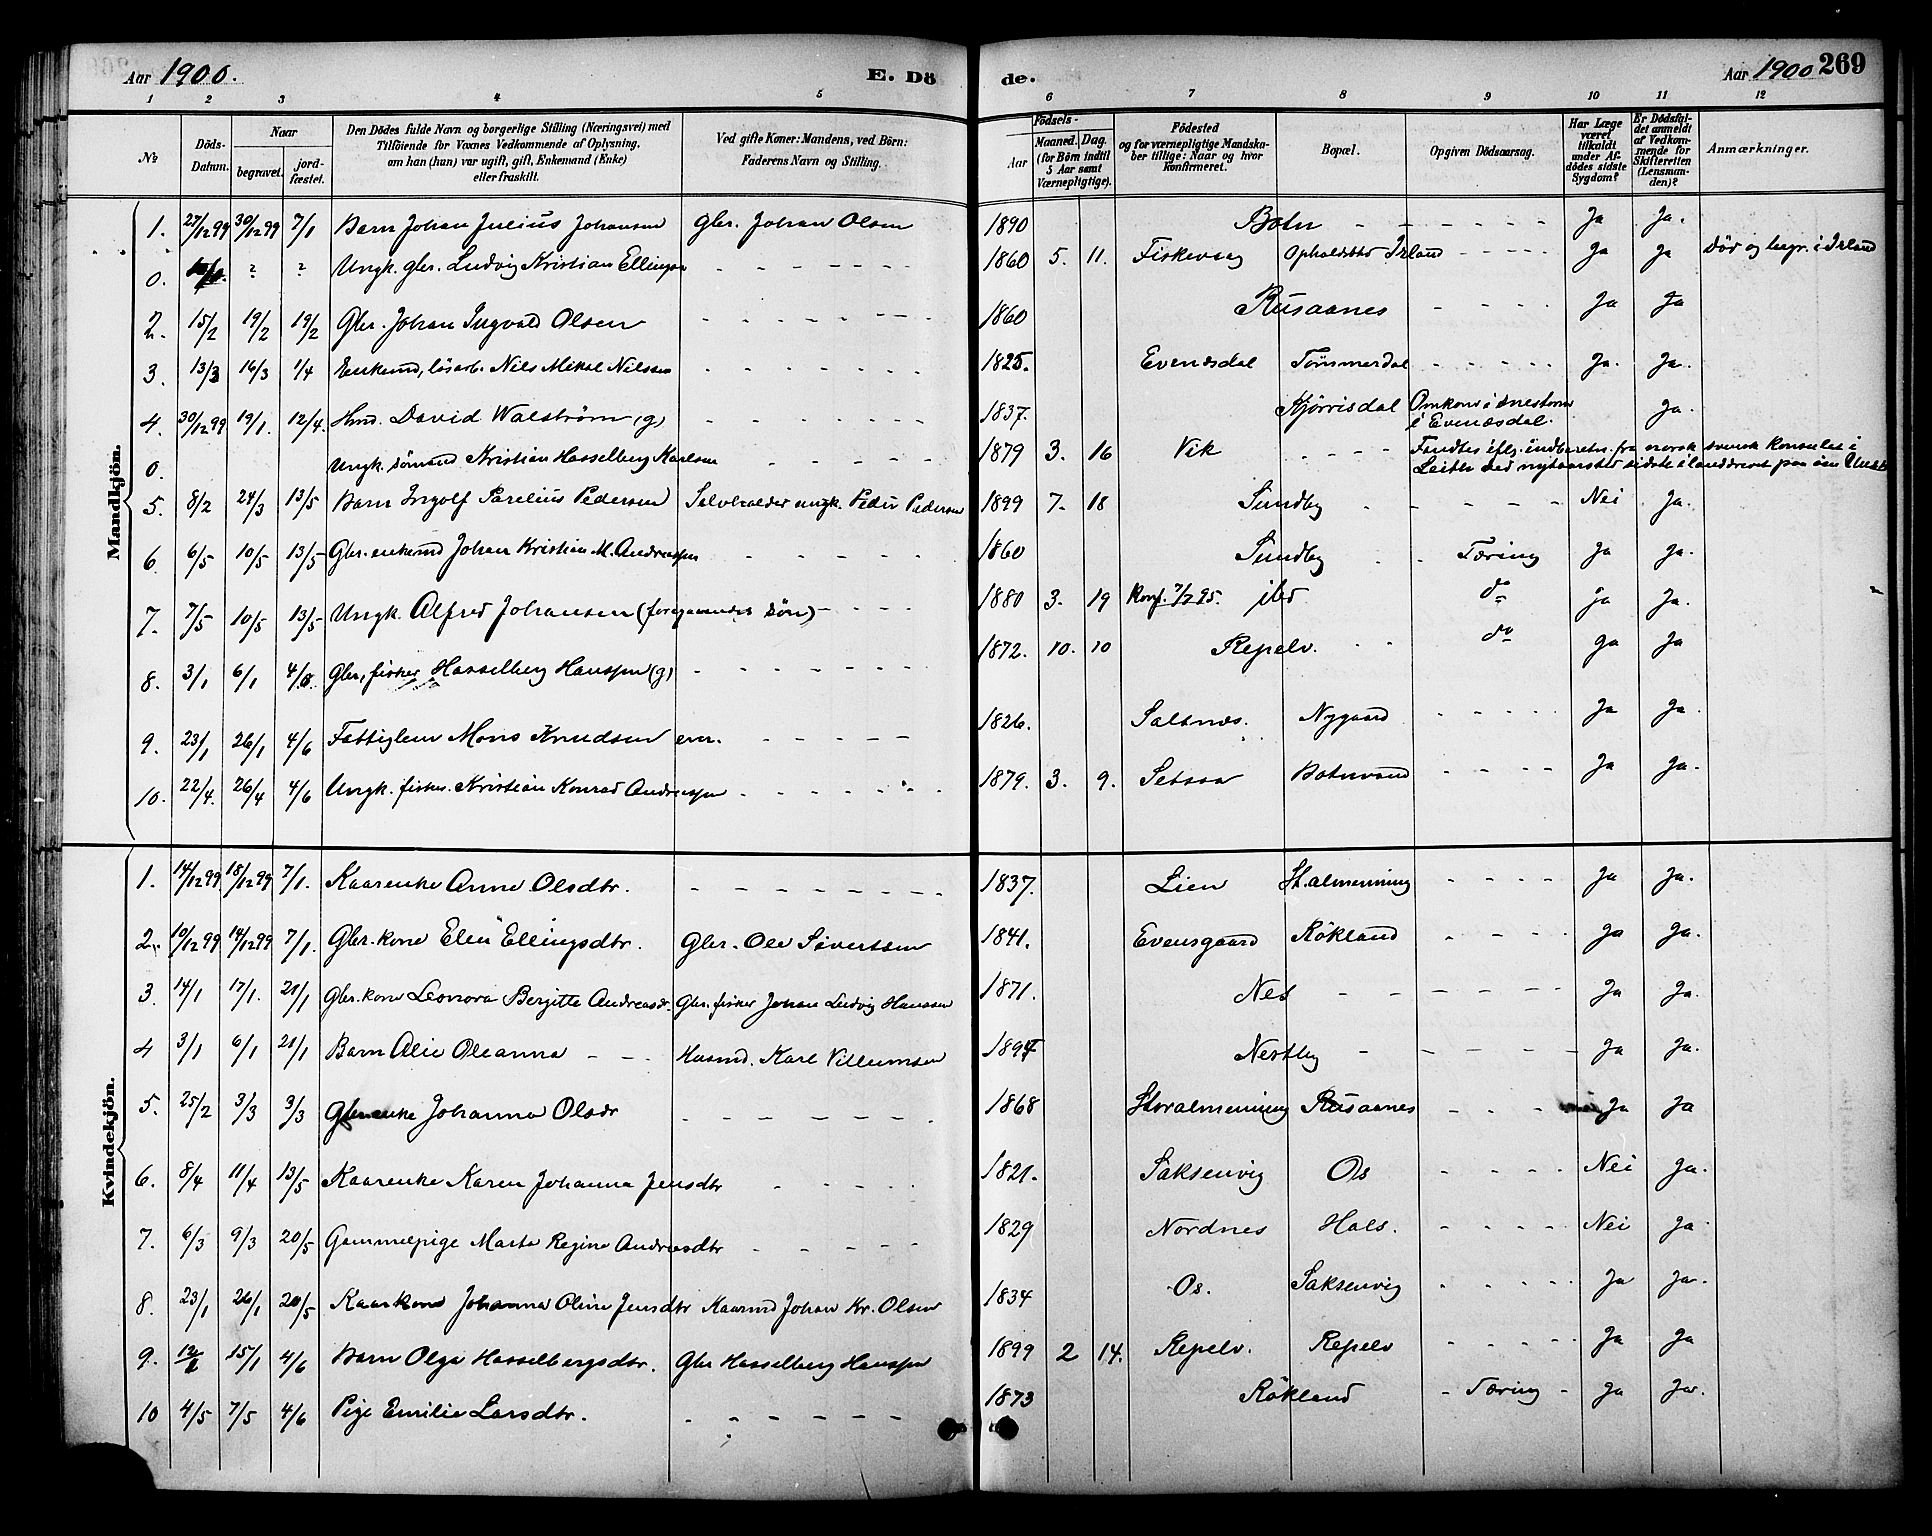 Aar 1900. E. Dö de. Aar 1900 269
1 2 3 4 5 6 7 8 9 10 11 12
№ Döds-Datum. Naar begravet. jordfæstet. Den Dödes fulde Navn og borgerlige Stilling (Næringsvei) med Tilföiende for Voxnes Vedkommende af Oplysning, om han (hun) var ugift, gift, Enkemand (Enke) eller fraskilt. Ved gifte Koner: Mandens, ved Börn: Faderens Navn og Stilling. Födsels- Aar Maaned. Dag. (for Börn indtil 5 Aar samt Værnepligtige). Födested og for værnepligtige Mandskaber tillige: Naar og hvor konfirmeret. Bopæl. Opgiven Dödsaarsag. Har Læge været tilkaldt under Afdödes sidste Sygdom? Er Dödsfaldet anmeldt af Vedkommende for Skifteretten (Lensmanden)? Anmærkninger.
Mandkjön.
1. 27/12 99 30/12 99 7/1 Barn Johan Julius Johansen Gbr. Johan Olsen 1890 Botn Ja Ja.
0. ? ? Ungk. gbr. Ludvig Kristian Ellingsen 1860 5. 11. Fiskevaag Opholdssted Irland Ja Ja Död og begr. i Irland
2. 15/2 19/2 19/2 Gbr. Johan Ingvald Olsen 1860 Rusaanes Ja Ja
3. 13/3 16/3 1/4 Enkemd, lösarb. Nils Mikal Nilssen 1825. Evenesdal Tömmerdal Ja. Ja.
4. 30/12 99 19/1. 12/4. Hmd. David Walström (g) 1837. Kjørrisdal Omkom i snestorm i Evenæsdal. Ja.
0. Ungk. sömand Kristian Hasselberg Karlsen 1879 3. 16 Vik Fandtes ifly. indberetn. fra norsk svensk konsulat i Leith ved nytaarstid sidste ilanddrevet paa öen
5. 8/2 24/3 13/5 Barn Ingolf Parelius Pedersen Selveholder ungk. Peder Pedersen 1899 7. 18 Sundby Nei Ja.
6. 6/5 10/5 13/5 Gbr. enkemd Johan Kristian M. Andreassen 1860 Sundby Tæring Ja Ja.
7. 7/5 10/5 13/5 Ungk. Alfred Johansen (foregaaendes sön) 1880 3. 19 Konf. 7/7 95. ibd do Ja Ja.
8. 3/1 6/1 Gbr, fisker Hasselberg Hanssen (g) 1872. 10. 10 Repelv. do Ja Ja
9. 23/1 26/1 4/6 Fattiglem Mons Knudsen em. 1826. Saltnes. Nygaard Ja Ja.
10. 22/4. 26/4 4/6 Ungk. fisker. Kristian Konrad Andreassen 1879. 3. 9. Setsaa Botnvand Ja Ja.
Kvindekjön.
1. 14/12 99 18/12 99 7/1. Kaarenke Anne Olsdtr. 1837. Lien St.almenning Ja Ja.
2. 10/12 99 14/12 99 7/1. Gbr. kone Elen Ellingsdtr. Gbr. Ole Sivertsen 1841. Evensgaard Rökland Ja Ja.
3. 14/1 17/1. 21/1 Gbr. kone Leonora Bergitte Andreasdr. Gbr. fisker Johan Ludvig Hanssen 1871. Nes Ja Ja.
4 3/1 6/1 21/1 Barn Alie Oleanna Husmd. Karl Villumsen 1894 Nestby Ja Ja.
5. 25/2 3/3 3/3 Gbrenke Johanna Olsdr 1868 Storalmenning Rusaanes Ja Ja
6. 8/4 11/4 13/5 Kaarenke Karen Johanna Jensdtr 1821. Saksenvig Os Nei Ja.
7. 6/3 9/3 20/5 Gammelpige Marta Regine Andreasdtr 1829 Nordnes Hals. Nei Ja
8. 23/1 26/1 20/5 Kaarkone Johanna Oline Jensdtr Kaarmd Johan Kr. Olsen 1834 Os. Saksenvig Ja Ja.
9. 15/1 4/6 Barn Olga Hasselbergsdtr. Gbr Hasselberg Hanssen 1899 2 14. Repelv. Repelv Ja Ja
10 4/5 7/5 4/6 Pige Emilie Larsdtr. 1873 Rökland Tæring Ja Ja.